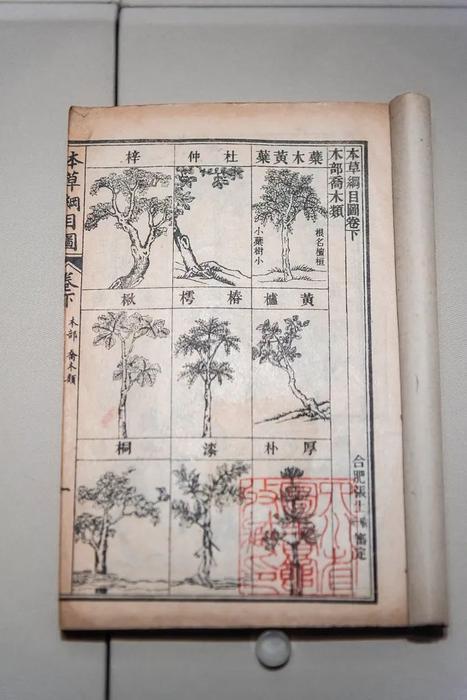 本草綱目圖卷下
木部喬木類
合肥張士珩審定
蘗木黃蘗
根名檀桓
小蘗樹小
杜仲
梓
黃櫨
椿樗
楸
厚朴
漆
桐
本草綱目圖
卷下
木部 喬木類
一